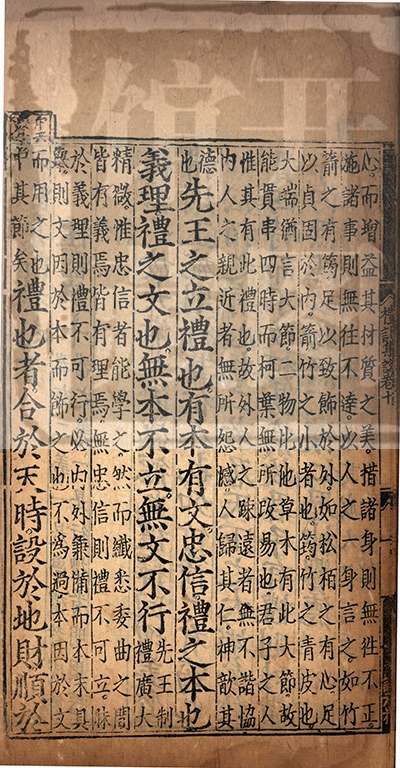 禮記集說卷十
心而增益其材質之美措諸身則無徃不正
施諸事則無徃不達以人之一身言之如竹
箭之有筠足以致飾於外如松柏之有心足
以貞固於內箭竹之小者也筠竹之青皮也
大端猶言大節二物比他草木有此大節故
能貫串四時而柯葉無所改易也君子之人
惟其有此禮也故外人之踈遠者無不諧協
內人之親近者無所怨憾人歸其仁神歆其
德也先王之立禮也有本有文忠信禮之本也
義理禮之文也無本不立無文不行先王制禮廣大
精微惟忠信者能學之然而纖悉委曲之間
皆有義焉皆有理焉無忠信則禮不可立昧
於義理則禮不可行必內外兼備而本末具
舉則文因於本而飾之也不為過本因於文
而用之也中其節矣禮也者合於天時設於地財順於